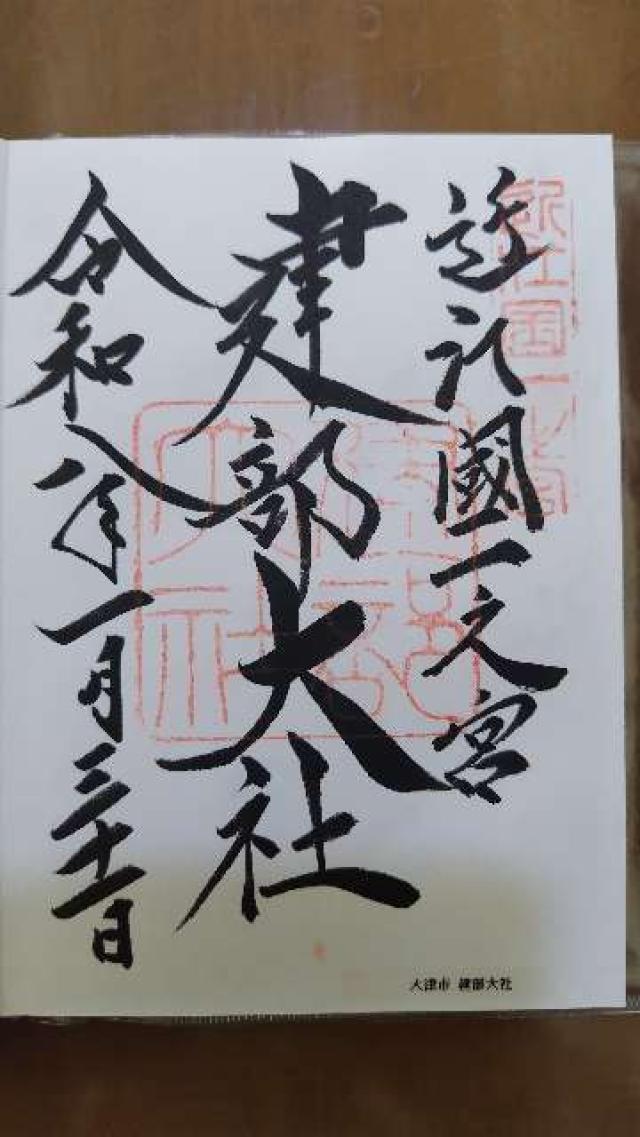 近江國一之宮
建部大社
令和八年一月三十一日
大津市 建部大社